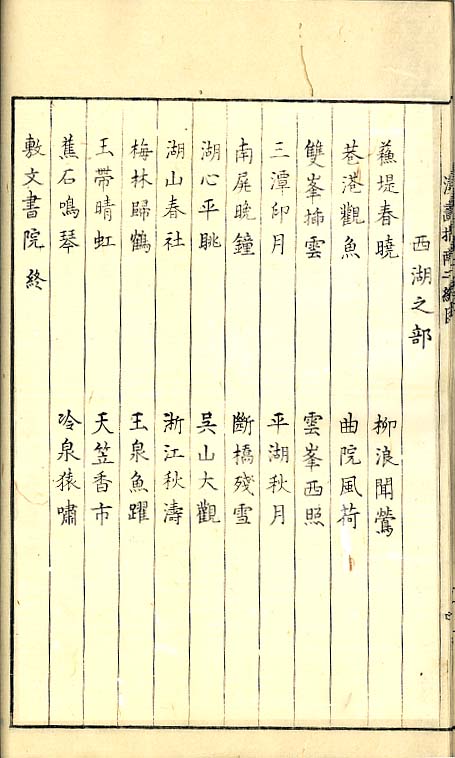 西湖之部
蘓堤春曉 柳浪聞鶯
巷港觀魚 曲院風荷
雙峯揷雲 雲峯西照
三潭印月 平湖秋月
南屏晩鐘 斷橋殘雪
湖心平眺 吳山大觀
湖山春社 浙江秋濤
梅林歸鶴 玉泉魚躍
玉帶晴虹 天笠香市
蕉石鳴琴 冷泉猿嘯
敷文書院 終